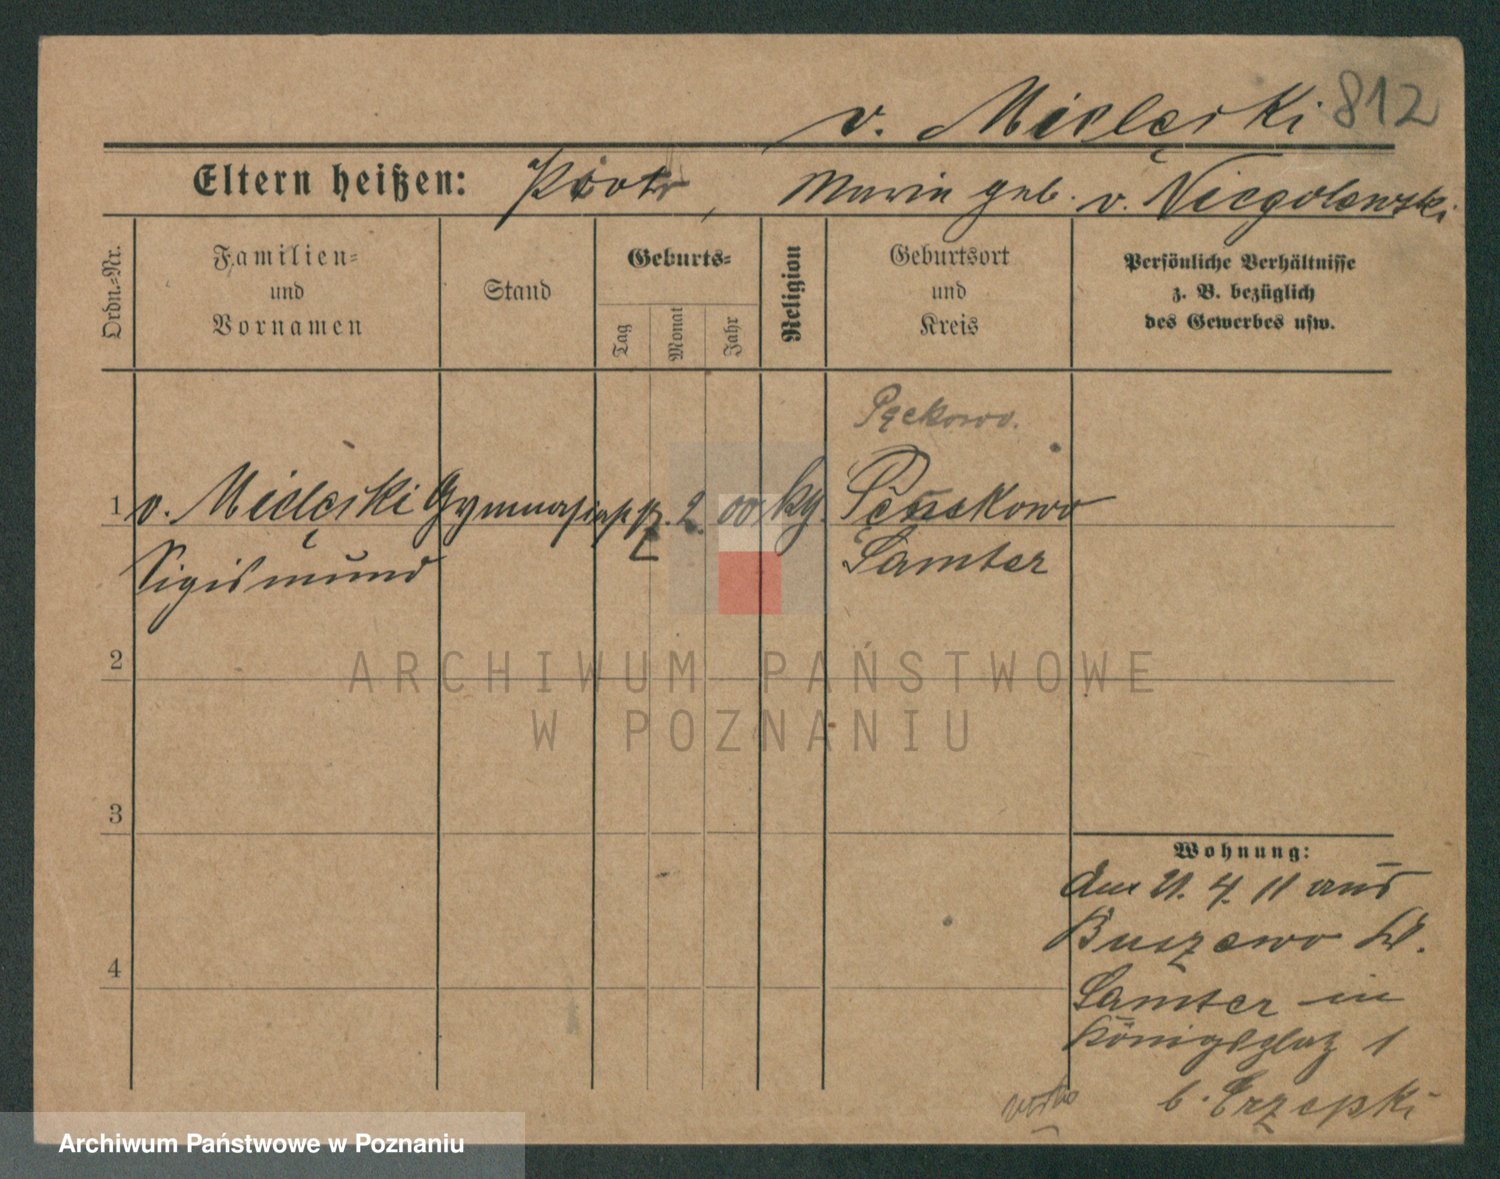 v. Mielęski 812
Eltern heißen: Piotr, Maria geb. v. Niegolewski
Ordn.=Nr.
Familien=
und
Vornamen
Stand
Geburts=
Tag
Monat
Jahr
Religion
Geburtsort
und
Kreis
Persönliche Verhältnisse
z. B. bezüglich
des Gewerbes usw.
Pęckowo.
1 v. Mielęski Gymnasiast 2. 00 kg. Penskowo
Sigismund Samter
2
3
4
Wohnung:
Am 21. 4. 11 aus
Buszewo Kr.
Samter in
Königsplatz 1
b. Erzepki
ARCHIWUM PAŃSTWOWE
W POZNANIU
Archiwum Państwowe w Poznaniu